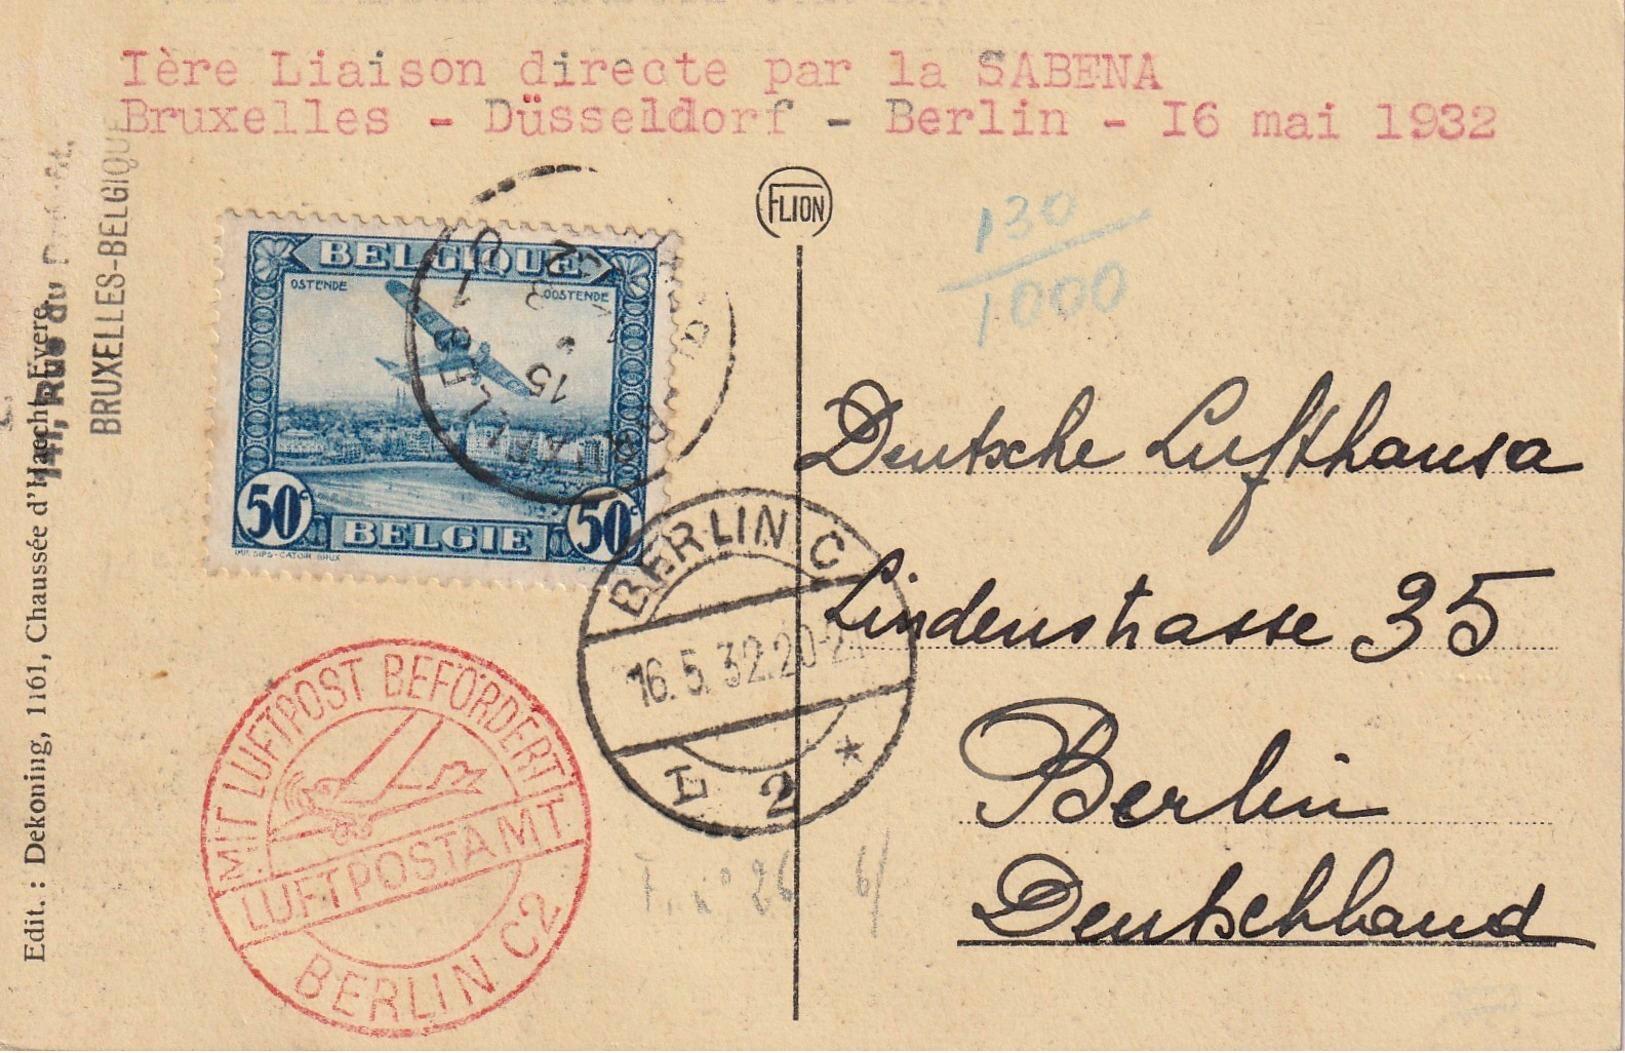 Ière Liaison directe par la SABENA
Bruxelles - Düsseldorf - Berlin - I6 mai 1932
FLION
130
1000
BELGIQUE
OSTENDE
OOSTENDE
50c
50c
BELGIE
IMP. SIPS-CATOIR BRUX
15
32
BERLIN C
16.5.32.20-2
L 2 *
MIT LUFTPOST BEFÖRDERT
LUFTPOSTAMT
BERLIN C2
Deutsche Lufthansa
Lindenstrasse 35
Berlin
Deutschland
Edit. : Dekoning, 1161, Chaussée d'Haecht, Evere.
141, Rue du
BRUXELLES-BELGIQUE